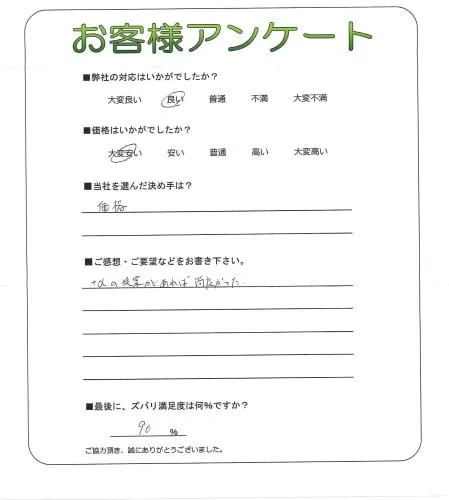 お客様アンケート
■弊社の対応はいかがでしたか?
大変良い 良い 普通 不満 大変不満
■価格はいかがでしたか?
大変安い 安い 普通 高い 大変高い
■当社を選んだ決め手は?
価格
■ご感想・ご要望などをお書き下さい。
+αの提案があれば尚良かった.
■最後に、ズバリ満足度は何%ですか?
90 %
ご協力頂き、誠にありがとうございました。